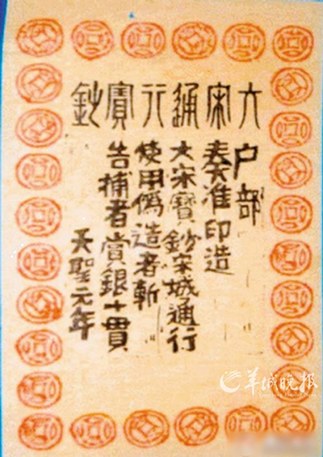 大宋通行寶鈔
户部
奏准印造
大宋寶鈔宋城通行
使用偽造者斬
告捕者賞銀十貫
天聖元年
羊城晚报